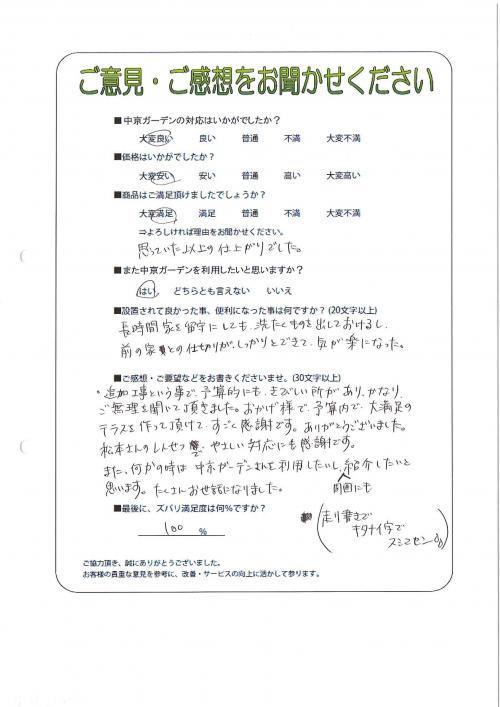 ご意見・ご感想をお聞かせください
■中京ガーデンの対応はいかがでしたか?
大変良い 良い 普通 不満 大変不満
■価格はいかがでしたか?
大変安い 安い 普通 高い 大変高い
■商品はご満足頂けましたでしょうか?
大変満足 満足 普通 不満 大変不満
⇒よろしければ理由をお聞かせください。
思っていた以上の仕上がりでした。
■また中京ガーデンを利用したいと思いますか?
はい どちらとも言えない いいえ
■設置されて良かった事、便利になった事は何ですか?(20文字以上)
長時間家を留守にしても、洗たくものを出しておけるし、
前の家との仕切りが、しっかりとできて、気が楽になった。
■ご感想・ご要望などをお書きくださいませ。(30文字以上)
追加工事という事で、予算的にも、きびしい所があり、かなり、
ご無理を聞いて頂きました。おかげ様で、予算内で、大満足の
テラスを作って頂けて、すごく感謝です。ありがとうございました。
松本さんのしんせつで、やさしい対応にも感謝です。
また、何かの時は中京ガーデンさんを利用したいし、紹介したいと
周囲にも
思います。たくさんお世話になりました。
■最後に、ズバリ満足度は何%ですか?
100 %
(走り書きで
キタナイ字で
スミマセン)
ご協力頂き、誠にありがとうございました。
お客様の貴重な意見を参考に、改善・サービスの向上に活かして参ります。